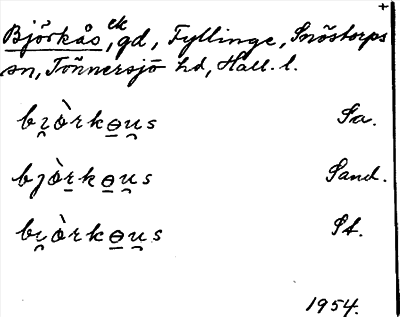 +
Björkås ek, gd, Fyllinge, Snöstorps
sn, Tönnersjö hd, Hall. l.
bi̯òrkɵu̯s Sa.
bjòrkɵu̯s Sand.
bi̯òrkɵu̯s St.
1954.